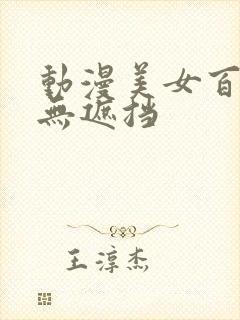 動漫美女百
無遮挡
王淳杰